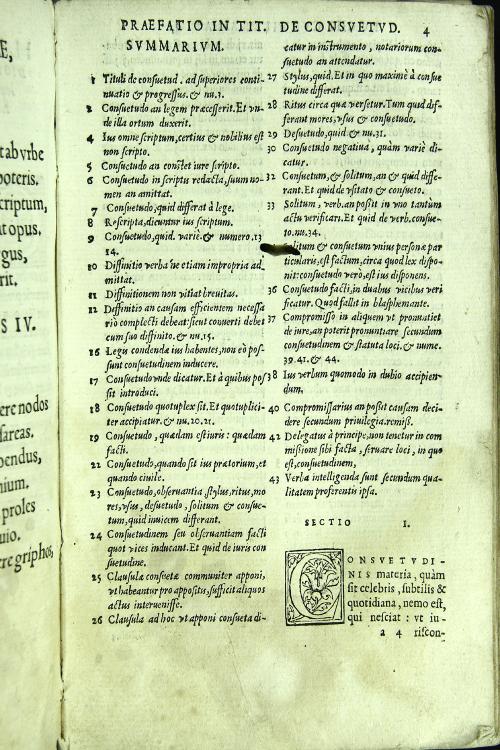 PRAEFATIO IN TIT. DE CONSVETVD. 4
SVMMARIVM.
1 Tituli de consuetud. ad superiores conti-
nuatio & progressus. & nu. 3.
2 Consuetudo an legem præcesserit. Et vn-
de illa ortum duxerit.
4 Ius omne scriptum, certius & nobilius est
non scripto.
5 Consuetudo an constet iure scripto.
6 Consuetudo in scriptis redacta, suum no-
men an amittat.
7 Consuetudo, quid differat à lege.
8 Rescripta, dicuntur ius scriptum.
9 Consuetudo, quid. variè. & numero, 13
14.
10 Diffinitio verba ne etiam impropria ad-
mittat.
11 Diffinitionem non vitiat breuitas.
12 Diffinitio an causam efficientem necessa
riò complecti debeat: sicut conuerti debet
cum suo diffinito. & nu. 15.
16 Legis condendæ ius habentes, non eò pos-
sunt consuetudinem inducere.
17 Consuetudo vnde dicatur. Et à quibus pos
sit introduci.
18 Consuetudo quotuplex sit. Et quotuplici-
ter accipiatur. & nu. 20. 21.
19 Consuetudo, quædam est iuris: quædam
facti.
22 Consuetudo, quando sit ius prætorium, et
quando ciuile.
23 Consuetudo, obseruantia, stylus, ritus, mo
res, vsus, desuetudo, solitum & consue-
tum, quid inuicem differant.
24 Consuetudinem seu obseruantiam facti
quot vices inducant. Et quid de iuris con
suetudine.
25 Clausula consuetæ communiter apponi,
vt habeantur pro appositis, sufficit aliquos
actus interuenisse.
26 Clausula ad hoc vt apponi consueta di-
catur in instrumento, notariorum con-
suetudo an attendatur.
27 Stylus, quid. Et in quo maximè à consue
tudine differat.
28 Ritus circa quæ versetur. Tum quid dif-
ferant mores, vsus & consuetudo.
29 Desuetudo, quid & nu. 31.
30 Consuetudo negatiua, quàm variè di-
catur.
32 Consuetum, & solitum, an & quid diffe-
rant. Et quid de vsitato & consueto.
33 Solitum, verb. an possit in vno tantum
actu verificari. Et quid de verb. consue-
to. nu. 34.
solitum & consuetum vnius personæ par
ticularis, est factum, circa quod lex dispo-
nit: consuetudo verò, est ius disponens.
36 Consuetudo facti, in duabus vicibus veri
ficatur. Quod fallit in blasphemante.
37 Compromisso in aliquem vt pronuntiet
de iure, an poterit pronuntiare secundum
consuetudinem & statuta loci. & nume.
39. 41. & 44.
38 Ius verbum quomodo in dubio accipien-
dum.
40 Compromissarius an possit causam deci-
dere secundum priuilegia. remiss.
42 Delegatus à principe, non tenetur in com
missione sibi facta, seruare loci, in quo
est, consuetudinem,
43 Verba intelligenda sunt secundum qua-
litatem proferentis ipsa.
SECTIO I.
CONSVETVDI-
NIS materia, quàm
sit celebris, subtilis &
quotidiana, nemo est,
qui nesciat: vt iu-
a 4 riscon-
Æ,
tab vrbe
poteris.
criptum,
at opus,
rgus,
rit.
S IV.
ere nodos
fareas.
pendus,
nium.
proles
uio.
rre griphos,